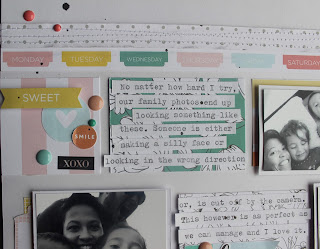 MONDAY TUESDAY WEDNESDAY SATURDAY
SWEET
SMILE
XOXO
No matter how hard I try,
our family photos end up
looking something like
these. Someone is either
making a silly face or
looking in the wrong direction
ur, is cut off by the camera.
This however is as perfect as
we can manage and I love it.